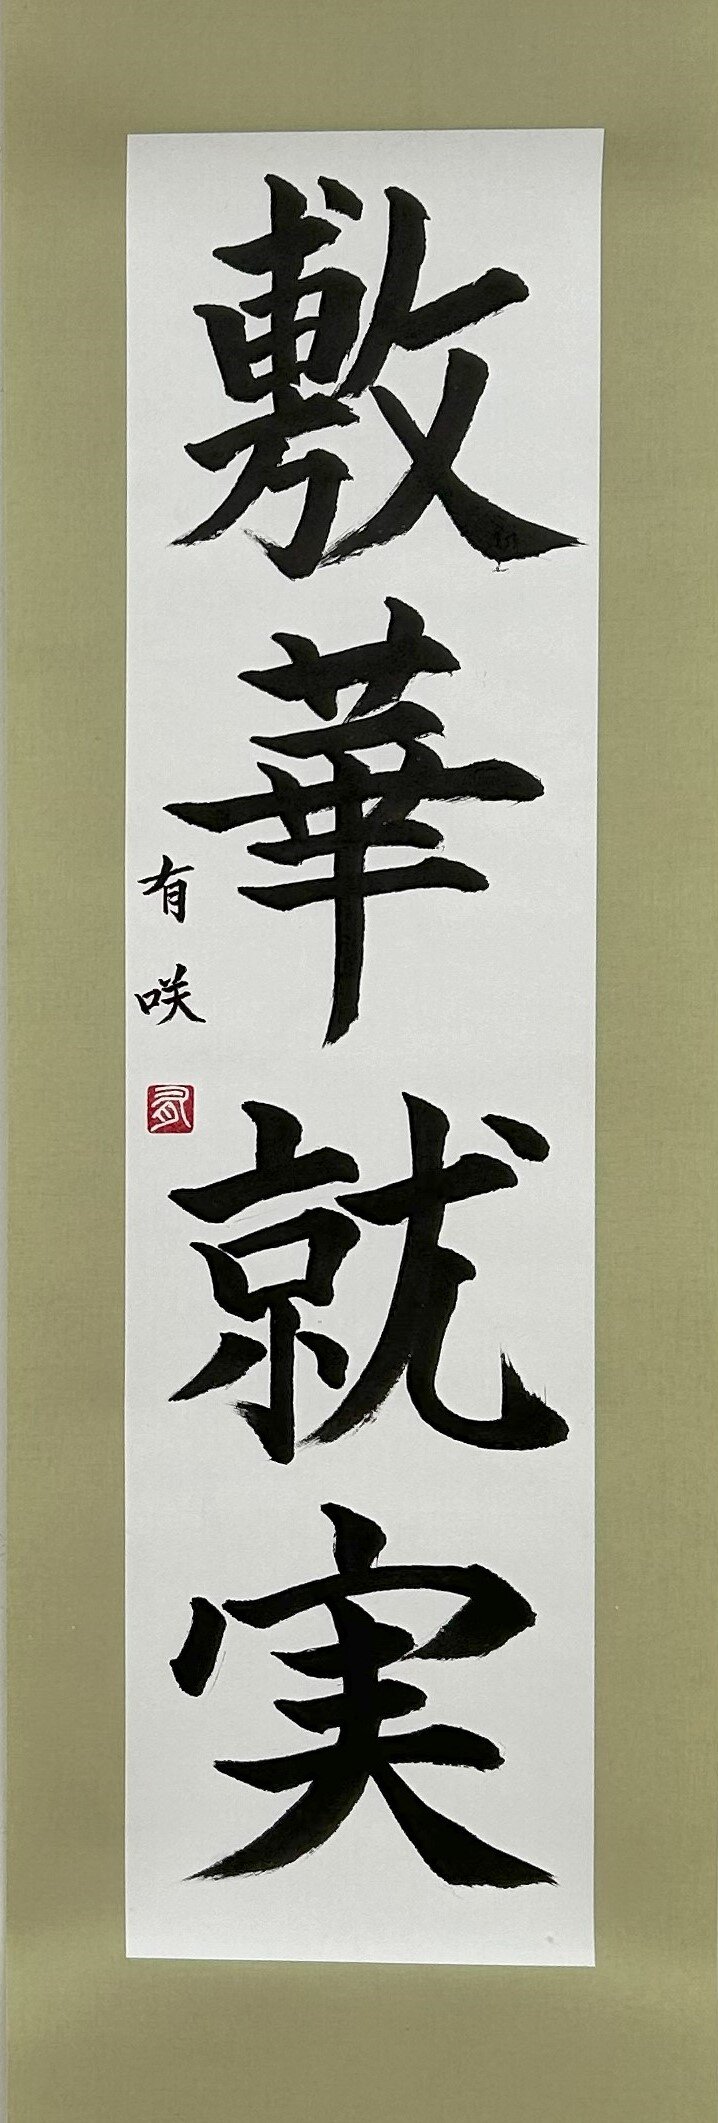 敷華就実
有咲